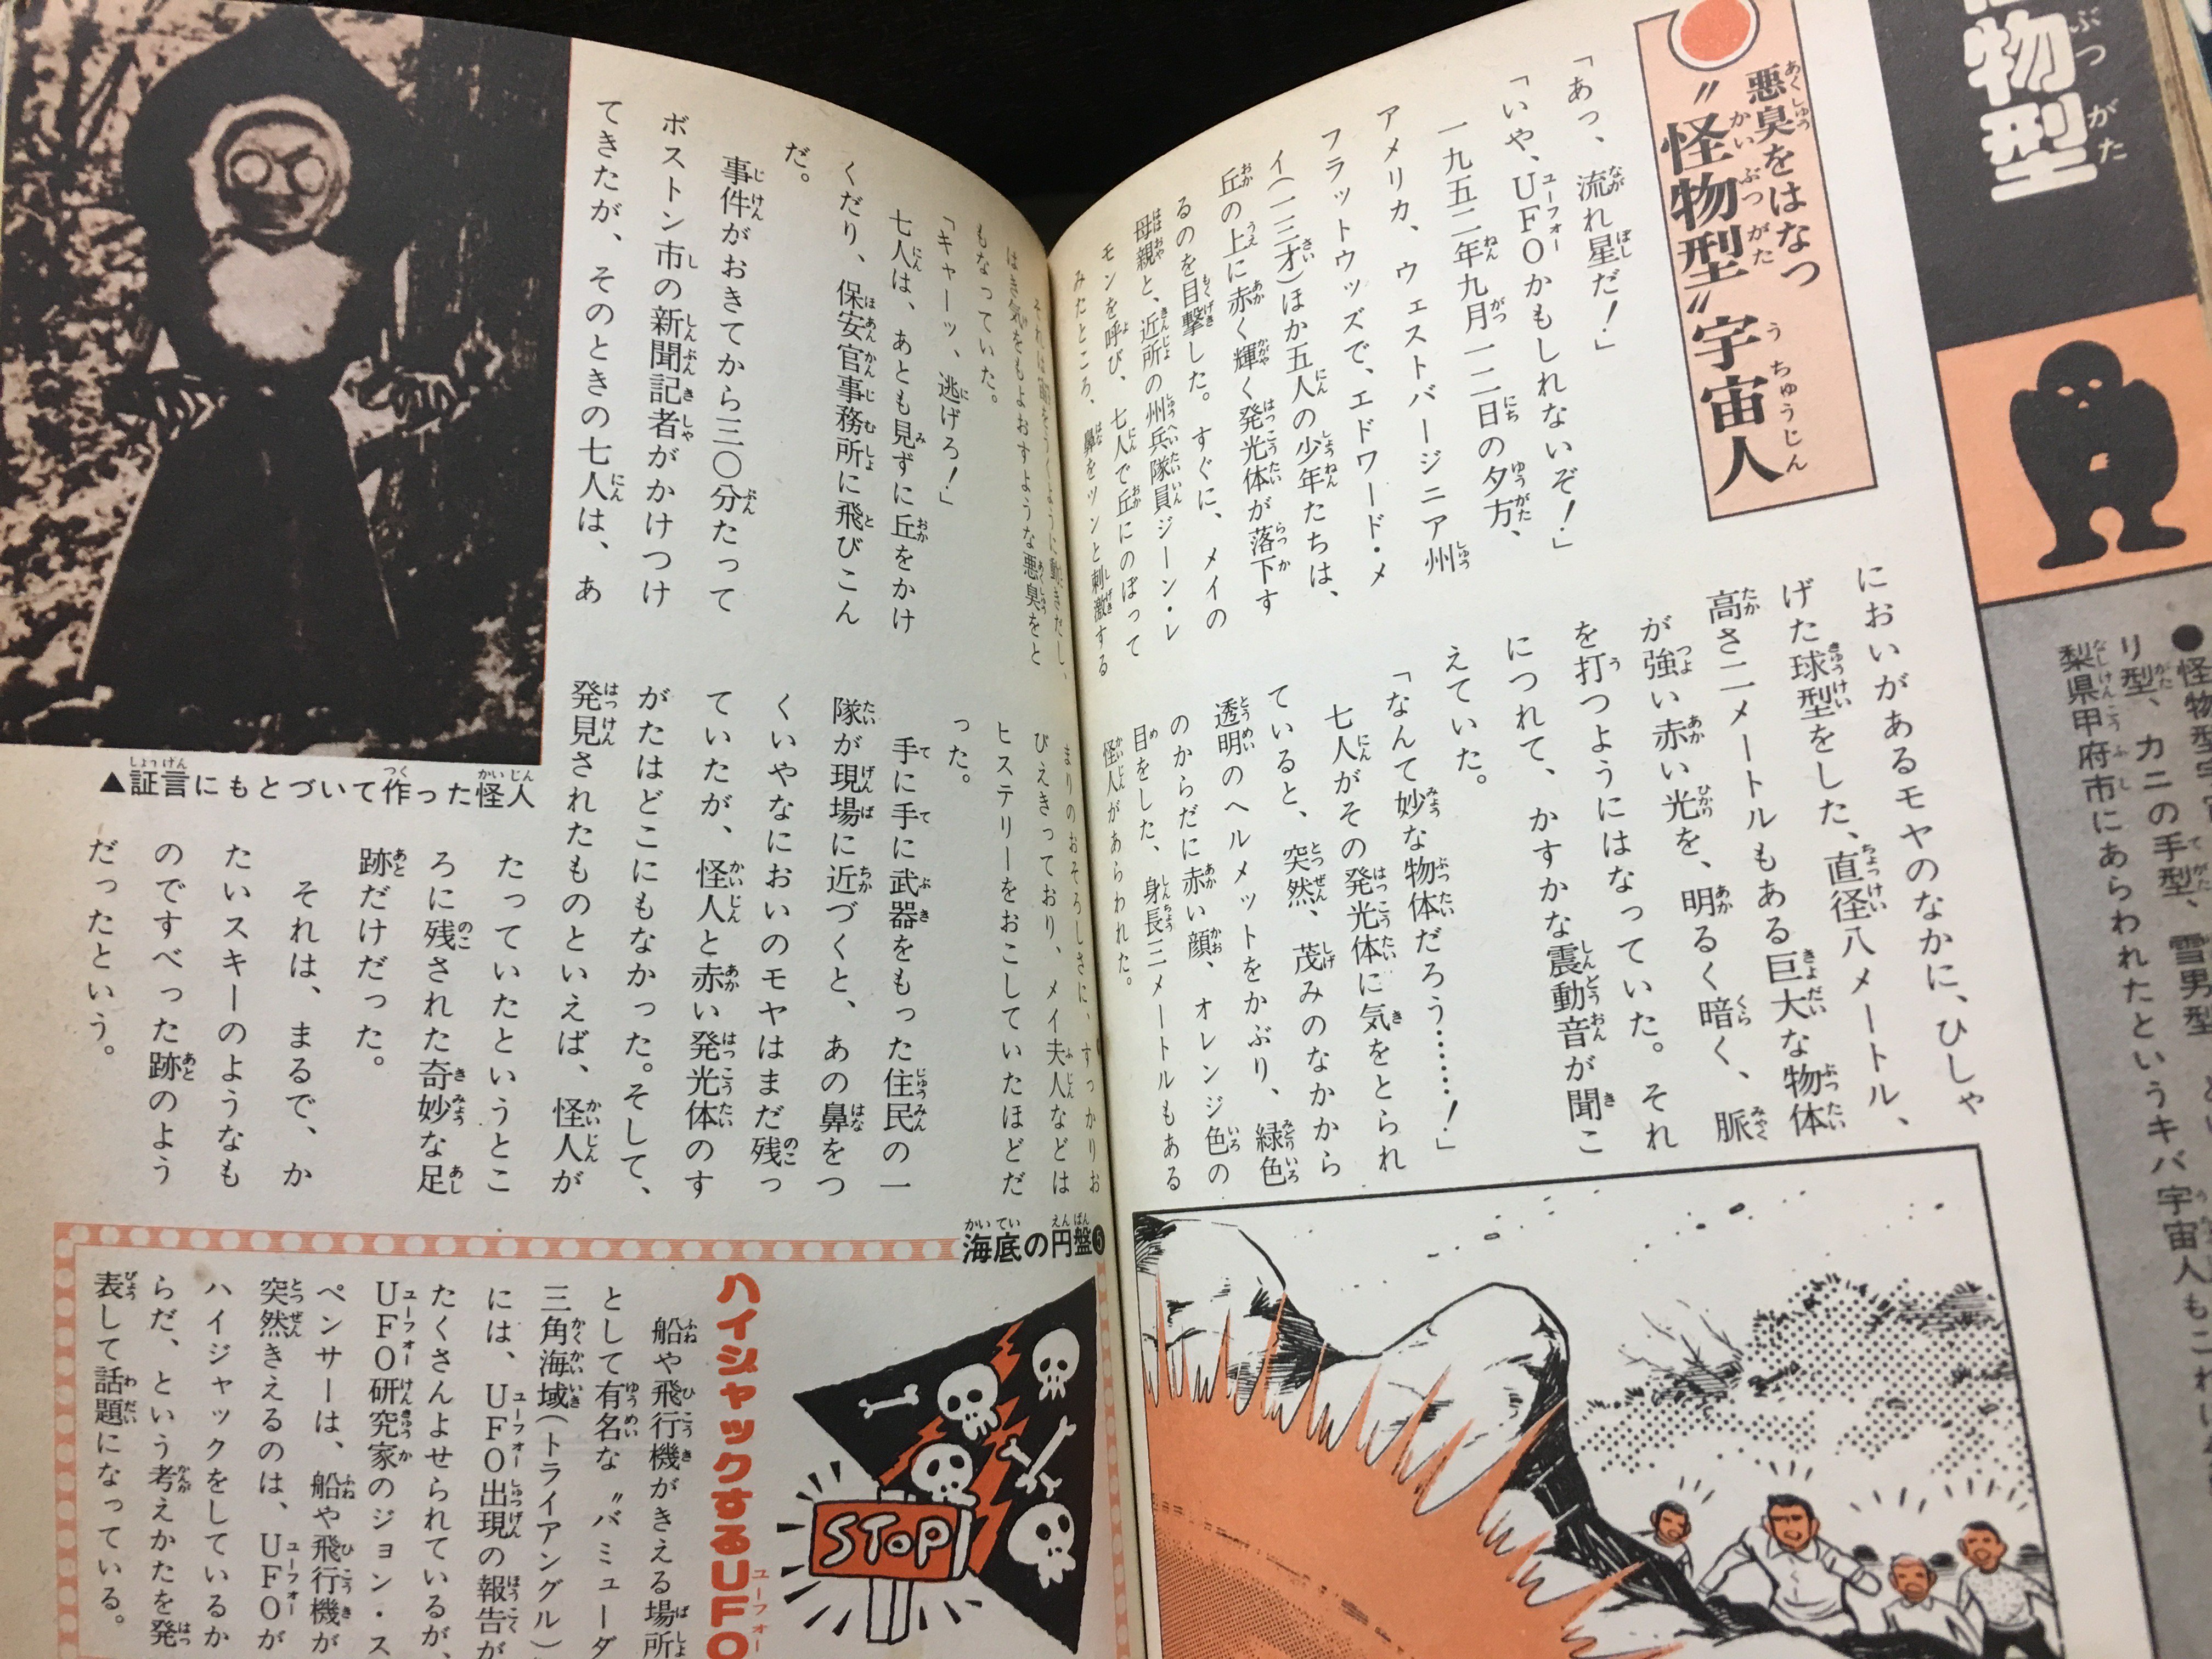 物型
●怪物型宇
り型、カニの手型、雪男型
梨県甲府市にあらわれたというキバ宇宙人もこれに
悪臭をはなつ
〝怪物型〟宇宙人
「あっ、流れ星だ！」
「いや、UFOかもしれないぞ！」
一九五二年九月一二日の夕方、
アメリカ、ウェストバージニア州
フラットウッズで、エドワード・メ
イ(一三才)ほか五人の少年たちは、
丘の上に赤く輝く発光体が落下す
るのを目撃した。すぐに、メイの
母親と、近所の州兵隊員ジーン・レ
モンを呼び、七人で丘にのぼって
みたところ、鼻をツンと刺激する
においがあるモヤのなかに、ひしゃ
げた球型をした、直径八メートル、
高さ二メートルもある巨大な物体
が強い赤い光を、明るく暗く、脈
を打つようにはなっていた。それ
につれて、かすかな震動音が聞こ
えていた。
「なんて妙な物体だろう……！」
七人がその発光体に気をとられ
ていると、突然、茂みのなかから
透明のヘルメットをかぶり、緑色
のからだに赤い顔、オレンジ色の
目をした、身長三メートルもある
怪人があらわれた。
それは宙をうくように動きだし、
はき気をもよおすような悪臭をと
もなっていた。
「キャーッ、逃げろ！」
七人は、あとも見ずに丘をかけ
くだり、保安官事務所に飛びこん
だ。
事件がおきてから三〇分たって
ボストン市の新聞記者がかけつけ
てきたが、そのときの七人は、あ
まりのおそろしさに、すっかりお
びえきっており、メイ夫人などは
ヒステリーをおこしていたほどだ
った。
手に手に武器をもった住民の一
隊が現場に近づくと、あの鼻をつ
くいやなにおいのモヤはまだ残っ
ていたが、怪人と赤い発光体のす
がたはどこにもなかった。そして、
発見されたものといえば、怪人が
たっていたというとこ
ろに残された奇妙な足
跡だけだった。
それは、まるで、か
たいスキーのようなも
のですべった跡のよう
だったという。
▲証言にもとづいて作った怪人
海底の円盤❺
ハイジャックするUFO
STOP!
船や飛行機がきえる場所
として有名な〝バミューダ
三角海域(トライアングル)
には、UFO出現の報告が
たくさんよせられているが、
UFO研究家のジョン・ス
ペンサーは、船や飛行機が
突然きえるのは、UFOが
ハイジャックをしているか
らだ、という考えかたを発
表して話題になっている。